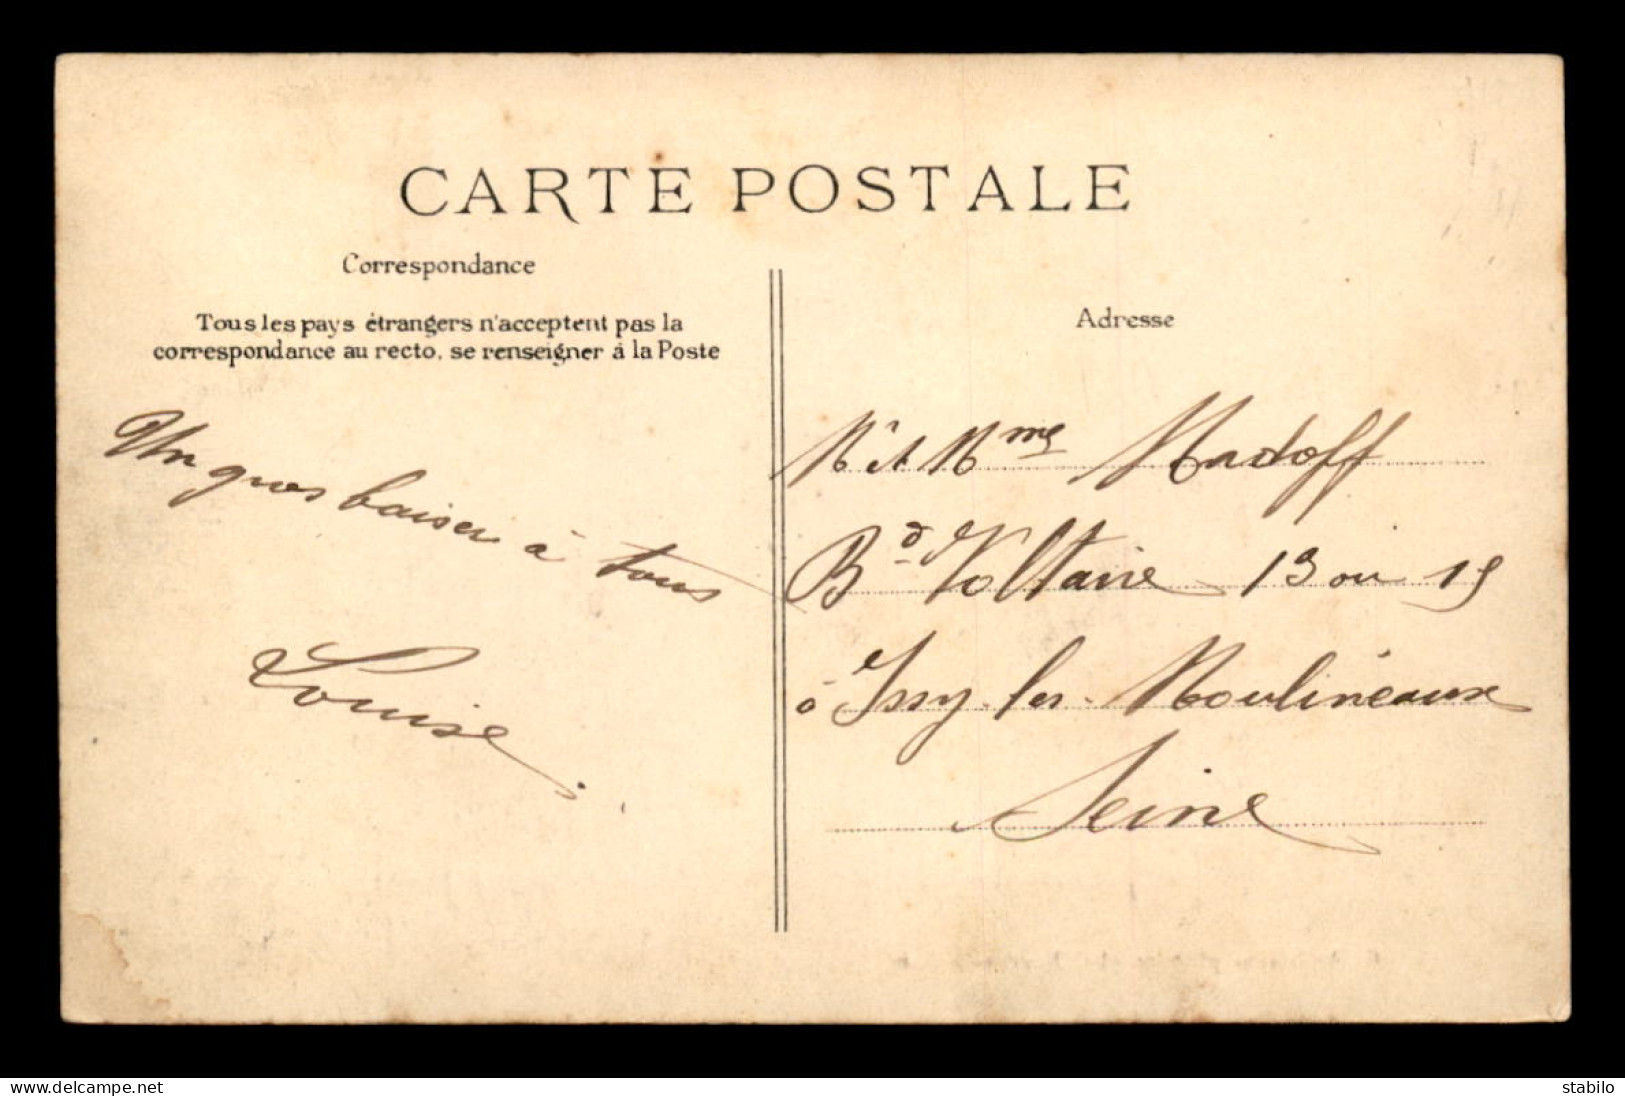 CARTE POSTALE
Correspondance
Tous les pays étrangers n'acceptent pas la
correspondance au recto, se renseigner à la Poste
Un gros baiser à tous
Louise
Adresse
Mr et Mme Madoff
Bd Voltaire 13 ou 15
à Issy-les-Moulineaux
Seine
www.delcampe.net
stabilo